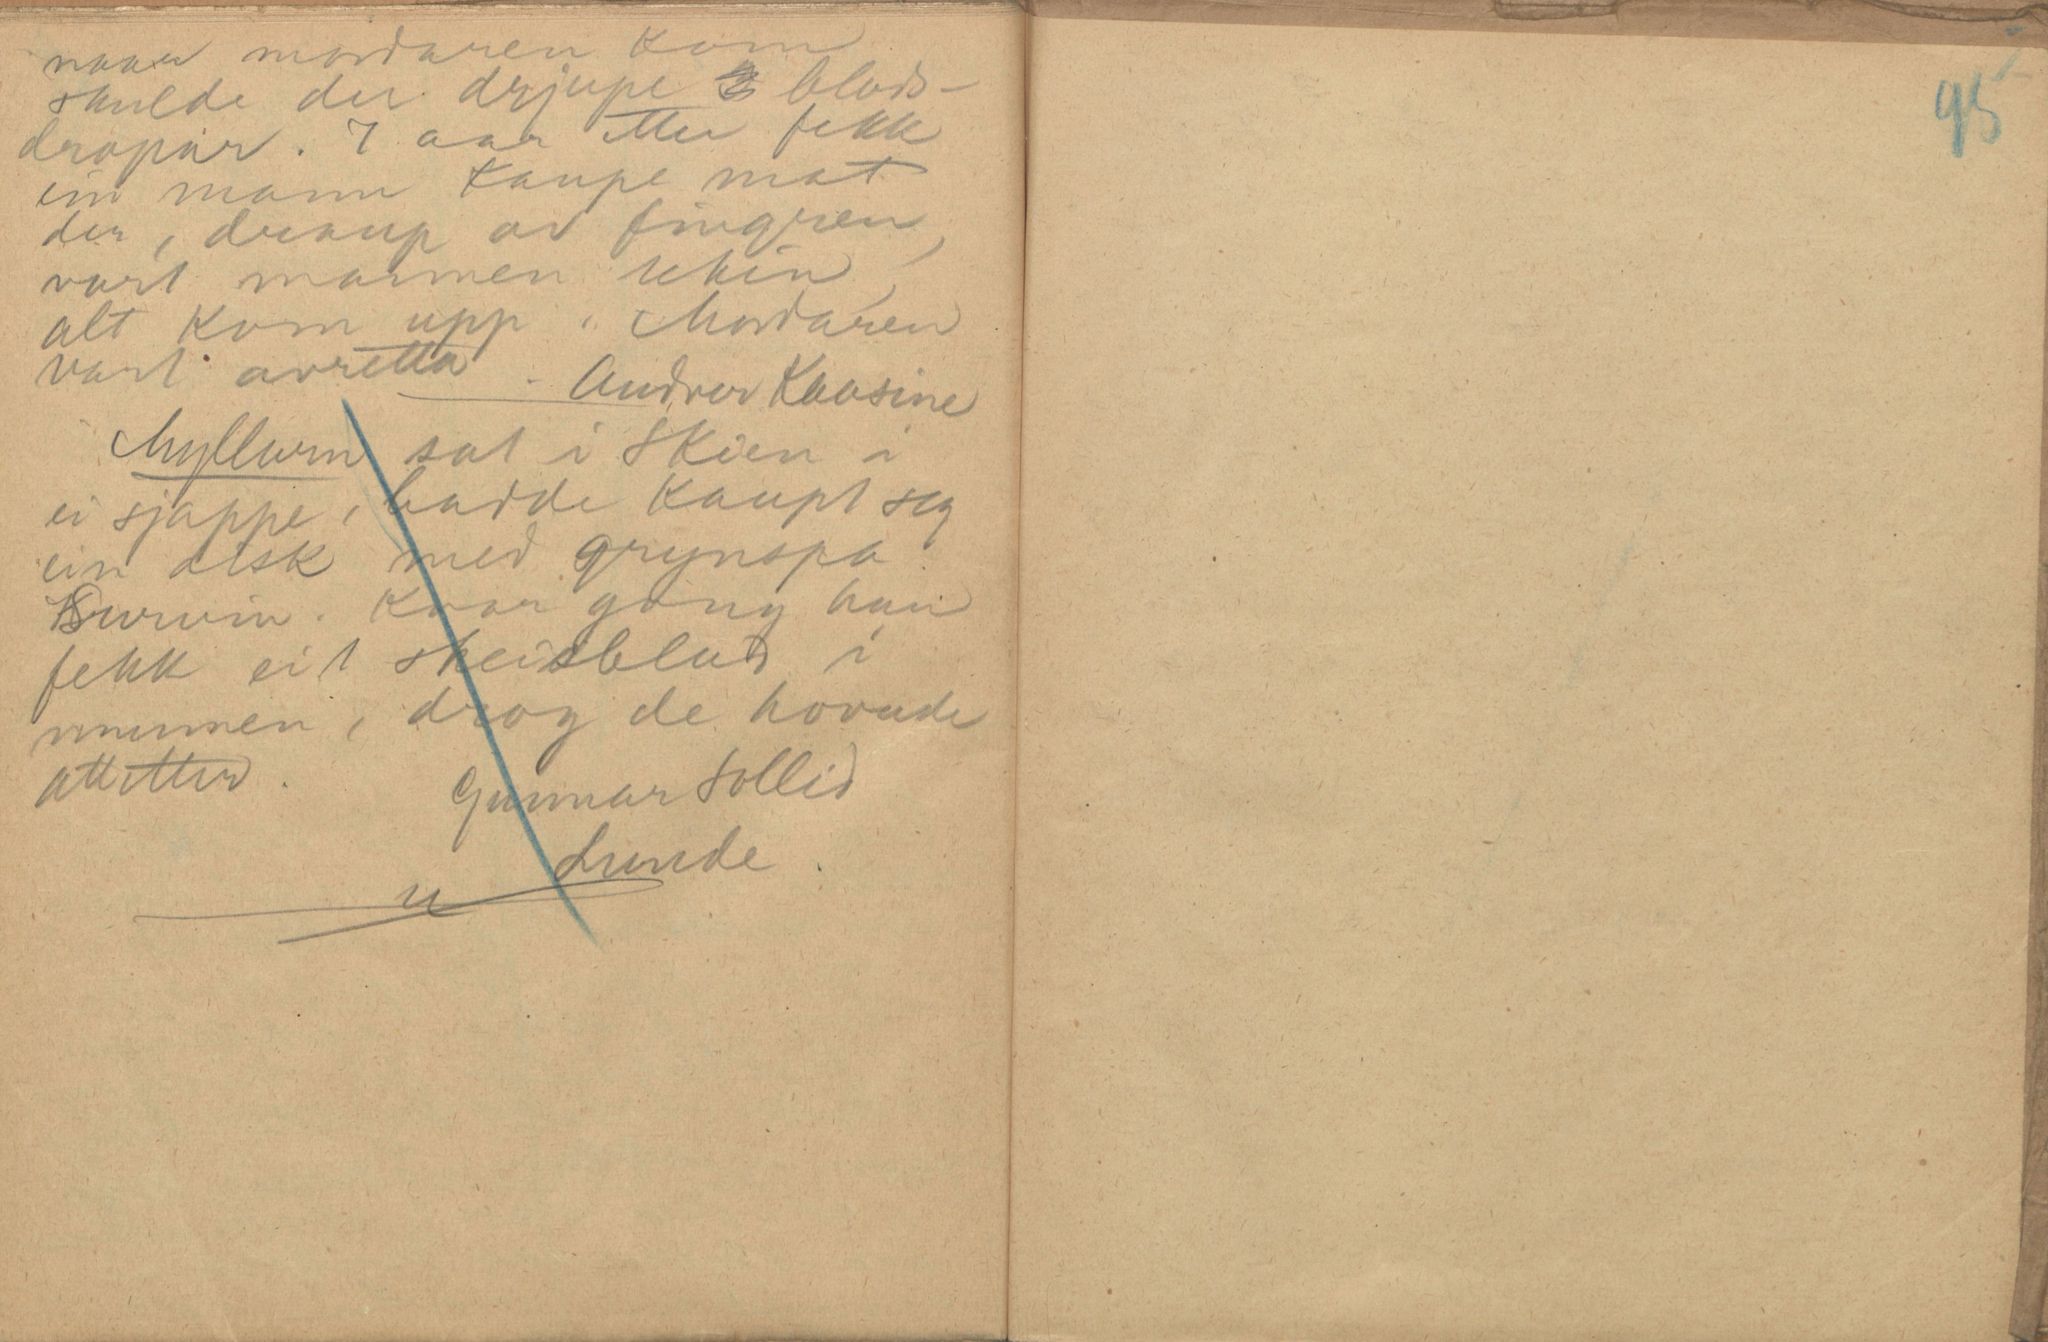 naar mordaren kom
skulde der drjupe 3 blods-
dropar. 7 aar etter fekk
ein mann kaupe mat
der, draup av fingren,
vart mannen tekin,
alt kom upp. Mordaren
vart avretta. Andres Kaasine
Myllarn sat i Skien i
ei sjappe, hadde kaupt seg
ein disk med grynspa
Kvar gong han
fekk eit skeisblad i
munnen, drog de hovude
attetter.
Gunnar Sollid
Lunde
95